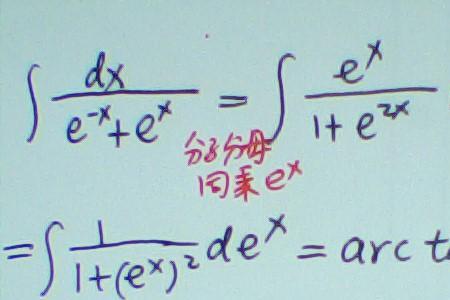 ∫ dx/(e^{-x}+e^{x}) = ∫ e^{x}/(1+e^{2x})
分子分母
同乘e^{x}
=∫ 1/(1+(e^{x})^{2}) de^{x} = arc t